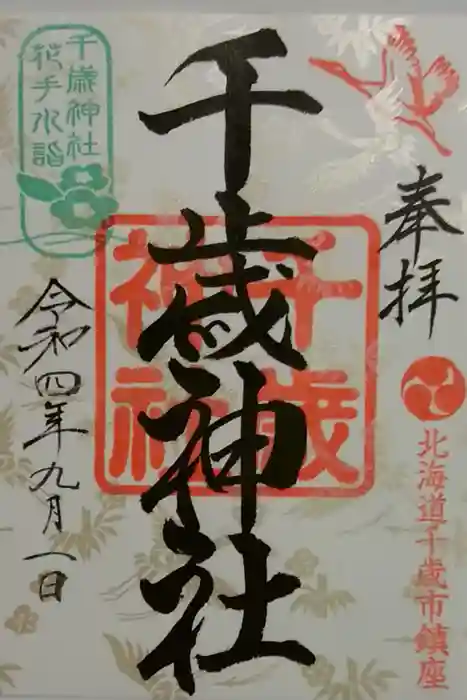 奉拝
北海道千歳市鎮座
千歳神社
千歳
神社
千歳神社
花手水詣
令和四年九月一日